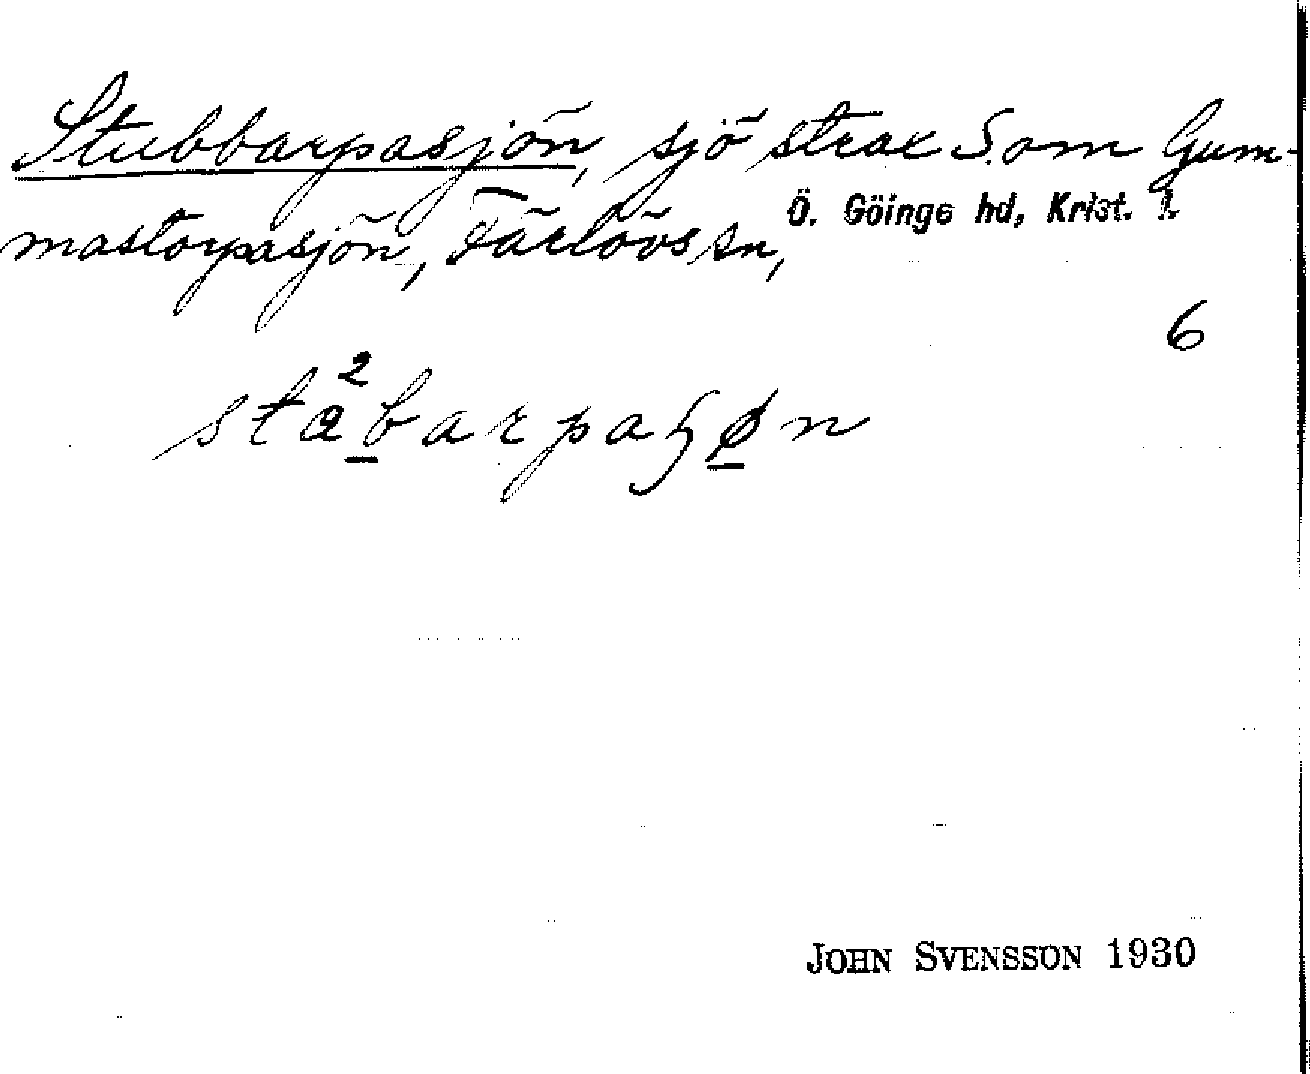 Stubbarpasjön, sjö strax S. om Gum-
mastorpasjön, Färlövs sn, Ö. Göinge hd, Krist. l.
6
JOHN SVENSSON 1930